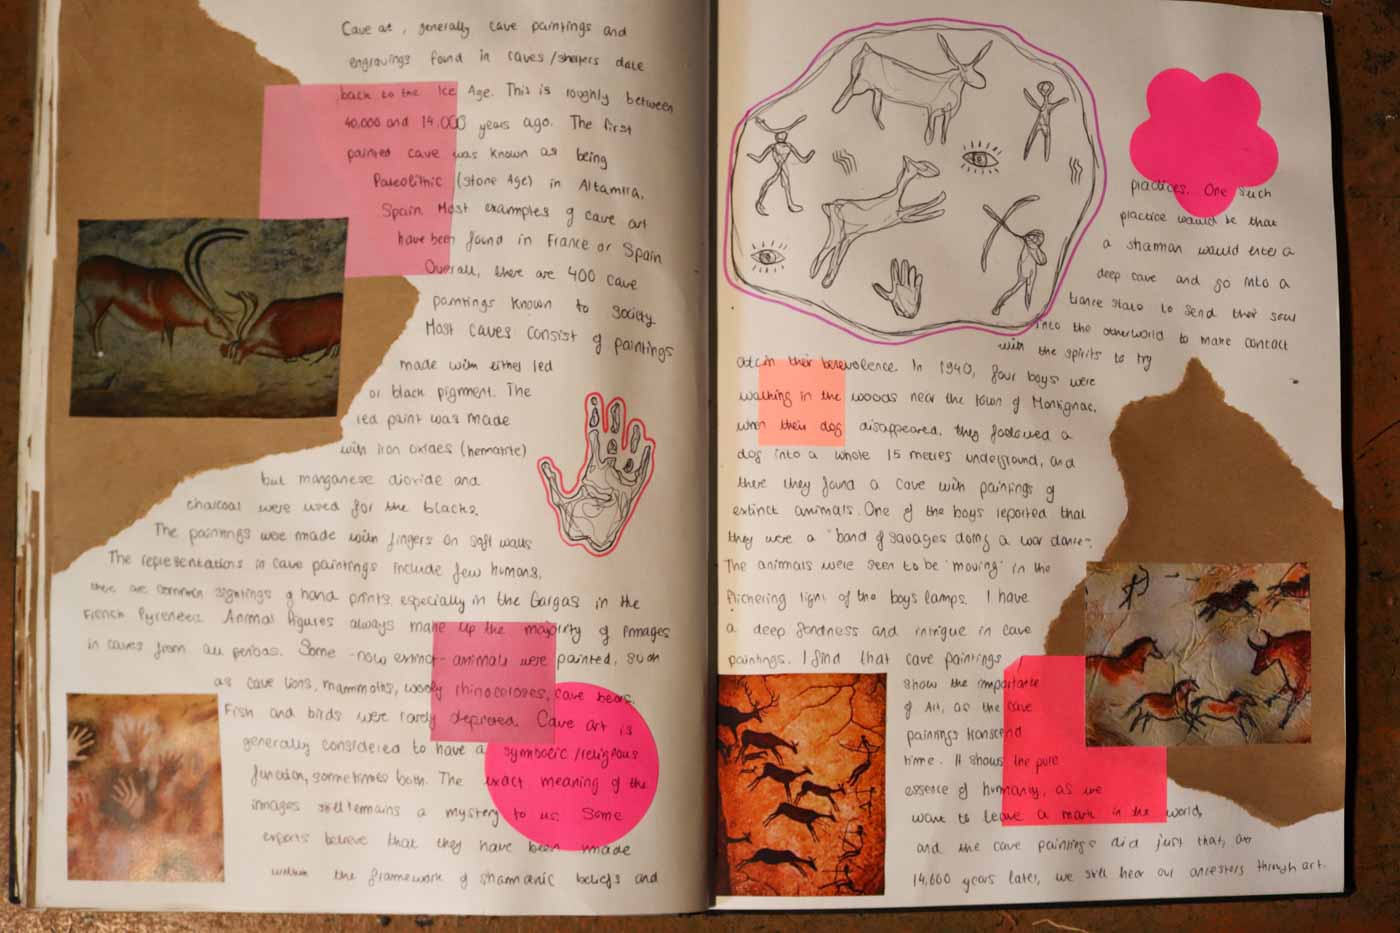 Cave at, generally cave paintings and
engravings found in caves/shelters date
back to the Ice Age. This is roughly between
40,000 and 14,000 years ago. The first
painted cave was known as being
Paleolithic (Stone Age) in Altamira,
Spain. Most examples of cave art
have been found in France or Spain
Overall, there are 400 cave
paintings known to society.
Most caves consist of paintings
made with either red
or black pigment. The
red paint was made
with iron oxides (hematite)
but manganese dioxide and
charcoal were used for the blacks.
The paintings were made with fingers on soft walls
The representations in cave paintings include few humans,
there are common sightings of hand prints, especially in the Gargas in the
French Pyrenees. Animal figures always make up the majority of images
in caves from all periods. Some -now extinct- animals were painted, such
as cave lions, mammoths, wooly rhinoceroses, cave bears.
Fish and birds were rarely depicted. Cave art is
generally considered to have a symbolic/religious
function, sometimes both. The exact meaning of the
images still remains a mystery to us. Some
experts believe that they have been made
within the framework of shamanic beliefs and
practices. One such
practice would be that
a shaman would enter a
deep cave and go into a
trance state to send their soul
into the otherworld to make contact
with the spirits to try
their benevolence. In 1940, four boys were
walking in the woods near the town of Montignac,
when their dog disappeared, they followed a
dog into a whole 15 metres underground, and
there they found a cave with paintings of
extinct animals. One of the boys reported that
they were a "band of savages doing a war dance".
The animals were seen to be 'moving' in the
flickering light of the boys lamps. I have
a deep fondness and intrigue in cave
paintings. I find that cave paintings
show the importance
of Art, as the cave
paintings transcend
time. It shows the pure
essence of humanity, as we
want to leave a mark in the world,
and the cave paintings did just that, as
14,600 years later, we still hear our ancestors through art.